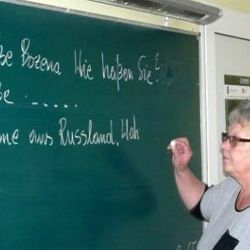 ße Bożena Wie haßen Sie?
e .....
me aus Russland, Woh